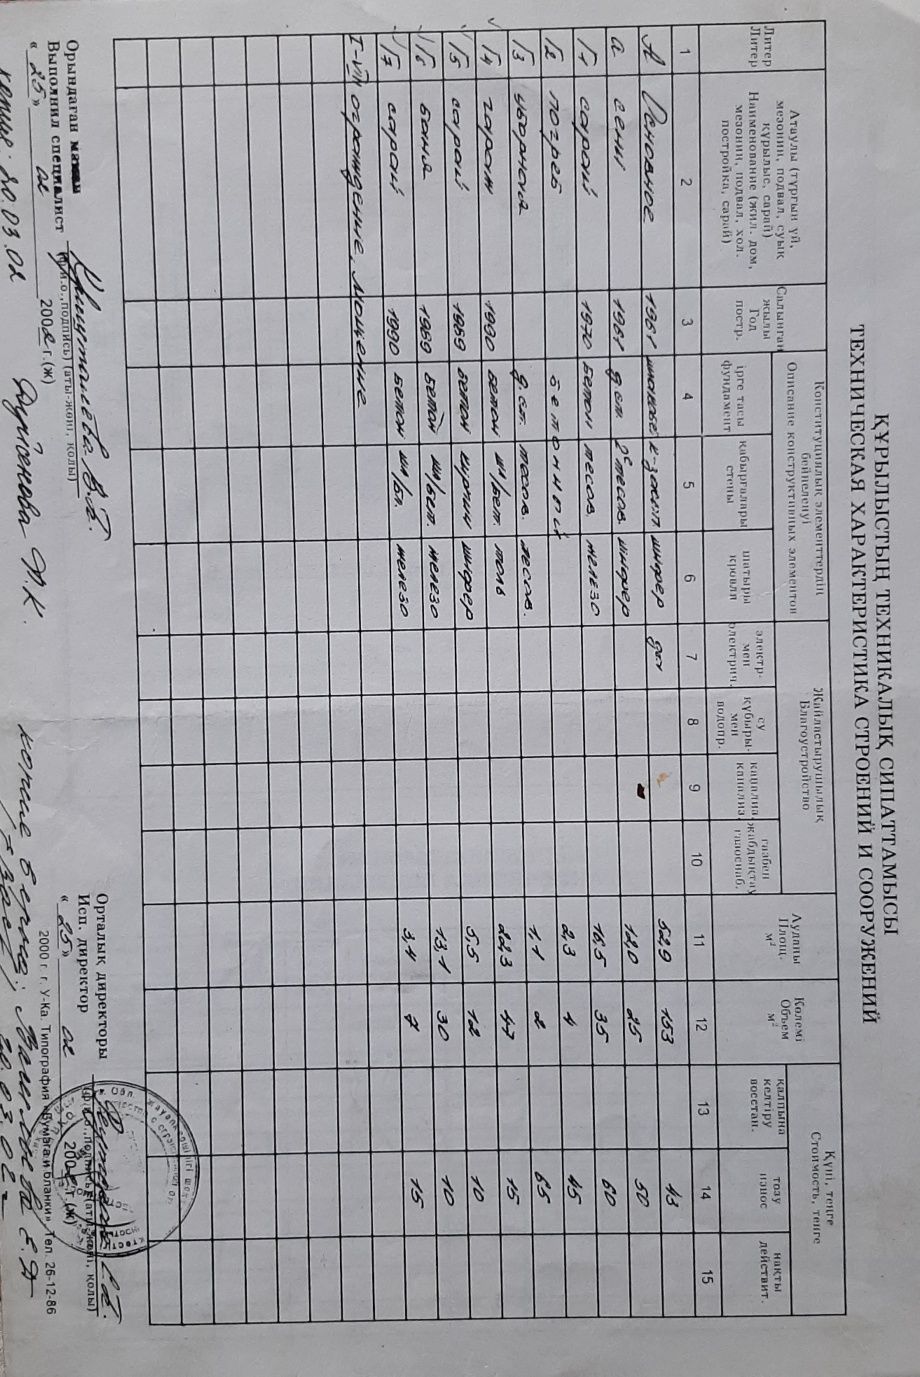 ҚҰРЫЛЫСТЫҢ ТЕХНИКАЛЫҚ СИПАТТАМЫСЫ
ТЕХНИЧЕСКАЯ ХАРАКТЕРИСТИКА СТРОЕНИЙ И СООРУЖЕНИЙ
Литер
Литер
Атаулы (тұрғын үй,
мезонин, подвал, суық
құрылыс, сарай)
Наименование (жил. дом,
мезонин, подвал, хол.
постройка, сарай)
Салынған
жылы
Год
постр.
Конституциялық элементтердің
бейнеленуі
Описание конструктивных элементов
ірге тасы
фундамент
қабырғалары
стены
шатыры
кровля
Жайластырушылық
Благоустройство
электр-
мен
электрич.
су
құбыры-
мен
водопр.
канализ
канализ
газбен
жабдықтау
газоснаб.
Ауданы
Площ-
м²
Көлемі
Объем
м³
Құні, теңге
Стоимость, тенге
қалпына
келтіру
восстан.
тозу
износ
нақты
действит.
1 2 3 4 5 6 7 8 9 10 11 12 13 14 15
А Основное 1961 шлакобет к-засып шифер да 52,9 153 43
а сени 1961 дер тесов. шифер 12,0 25 50
Г1 сарай 1970 бетон тесов. железо 18,5 35 60
Г2 погреб бетонный 2,3 4 45
Г3 уборная дер. тесов. тесов. 1,1 2 65
Г4 гараж 1990 бетон ш/бет. толь 22,3 47 15
Г5 сарай 1989 бетон кирпич шифер 5,5 12 10
Г6 баня 1989 бетон ш/бет. железо 13,1 30 10
Г7 сарай 1990 бетон ш/бл. железо 3,4 7 15
I-VII ограждение, мощение
Орындаған маман
Выполнил специалист
(ф.и.о.,подпись) (аты-жөні, қолы)
« 25 » 02 2002 г.(ж)
Орталық директоры
Исп. директор
(ф.и.о.,подпись) (аты-жөні, қолы)
« 25 » 02 2002 г.(ж)
2000 г. г. У-Ка. Типография «Бумага и бланки». Тел. 26-12-86
копия: 20.03.02
копия верна:
20.03.02 г.